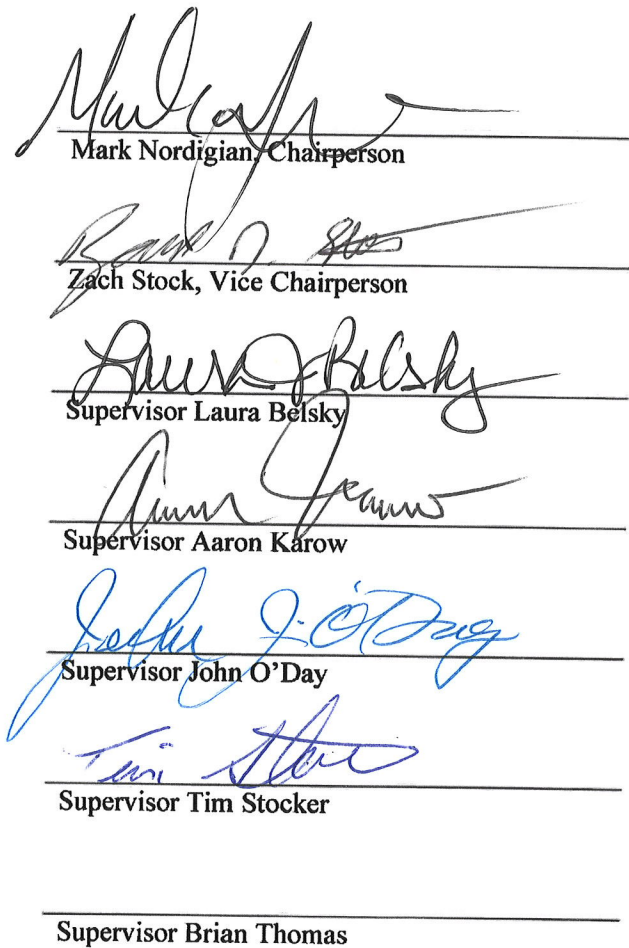 Mark Nordigian, Chairperson
Zach Stock, Vice Chairperson
Laura J Belsky
Supervisor Laura Belsky
Supervisor Aaron Karow
John J. O'Day
Supervisor John O'Day
Tim
Supervisor Tim Stocker
Supervisor Brian Thomas